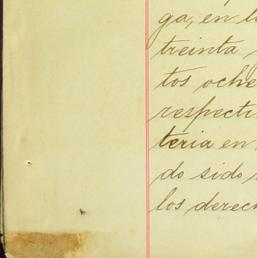 ga, en l
treinta
tos oche
respecti
teria en
do sido
los derec